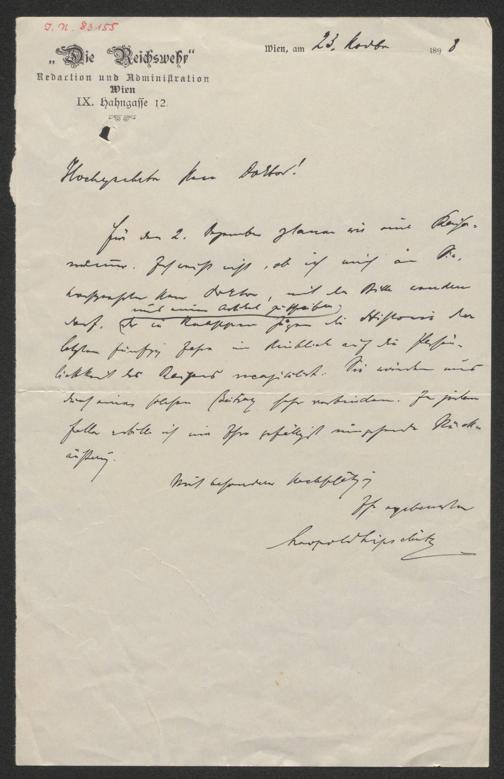 I. N. 83155
„Die Reichswehr“
Redaction und Administration
Wien
IX. Hahngasse 12.
Wien, am 23. Novbr 1898
Hochgeehrter Herr Doktor!
Für den 2. Dezember planen wir eine Kaiser-
nummer. Ich weiß nicht, ob ich mich an Sie,
hochgeehrter Herr Doktor, mit der Bitte wenden
darf, uns einen Artikel zu schreiben,
der in knappen Zügen die Historie der
letzten fünfzig Jahre im Hinblick auf die Persön-
lichkeit des Kaisers recapitulirt. Sie würden uns
durch einen solchen Beitrag sehr verbinden. In jedem
Falle bitte ich um Ihre gefälligst umgehende Rück-
äußerung.
Mit besonderer Hochschätzung
Ihr ergebenster
Leopold Lipschütz